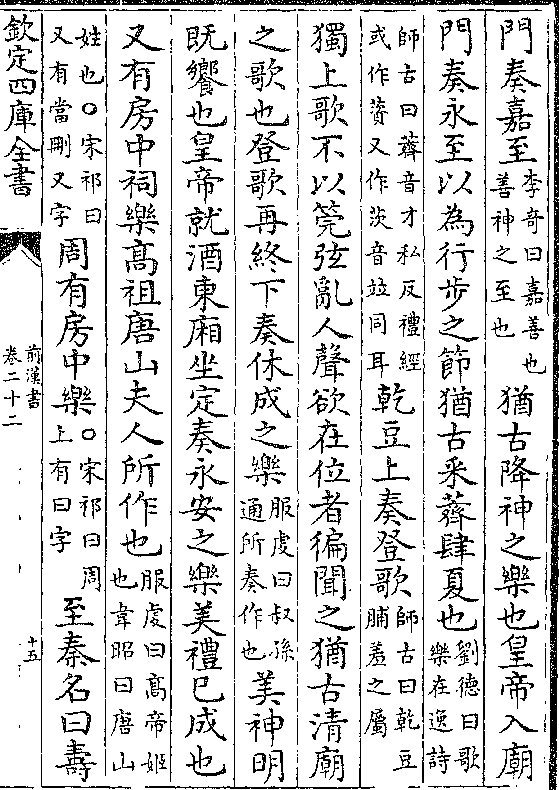 門奏嘉至李奇曰嘉善也善神之至也猶古降神之樂也皇帝入廟
門奏永至以為行步之節猶古采薺肆夏也劉德曰歌樂在逸詩
師古曰薺音才私反禮經或作薋又作茨音竝同耳乾豆上奏登歌師古曰乾豆脯羞之屬
獨上歌不以筦弦亂人聲欲在位者徧聞之猶古清廟
之歌也登歌再終下奏休成之樂服虔曰叔孫通所奏作也美神明
既饗也皇帝就酒東廂坐定奏永安之樂美禮已成也
又有房中祠樂髙祖唐山夫人所作也服虔曰髙帝姬也韋昭曰唐山
姓也○宋祁曰又有當刪又字周有房中樂○宋祁曰周上有曰字至秦名曰壽
欽定四庫全書
前漢書
卷二十二
十五